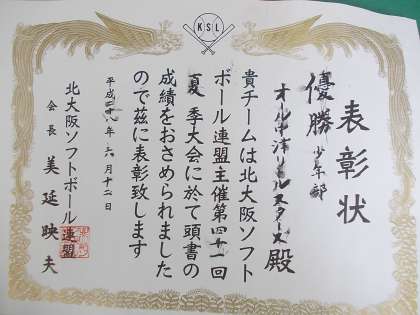 KSL
表彰状
優勝 少年部
オール中津リトルスターズ殿
貴チームは北大阪ソフト
ボール連盟主催第四十一回
夏季大会に於て頭書の
成績をおさめられました
ので茲に表彰致します
平成二十八年六月十二日
北大阪ソフトボール連盟
会長 美延映夫